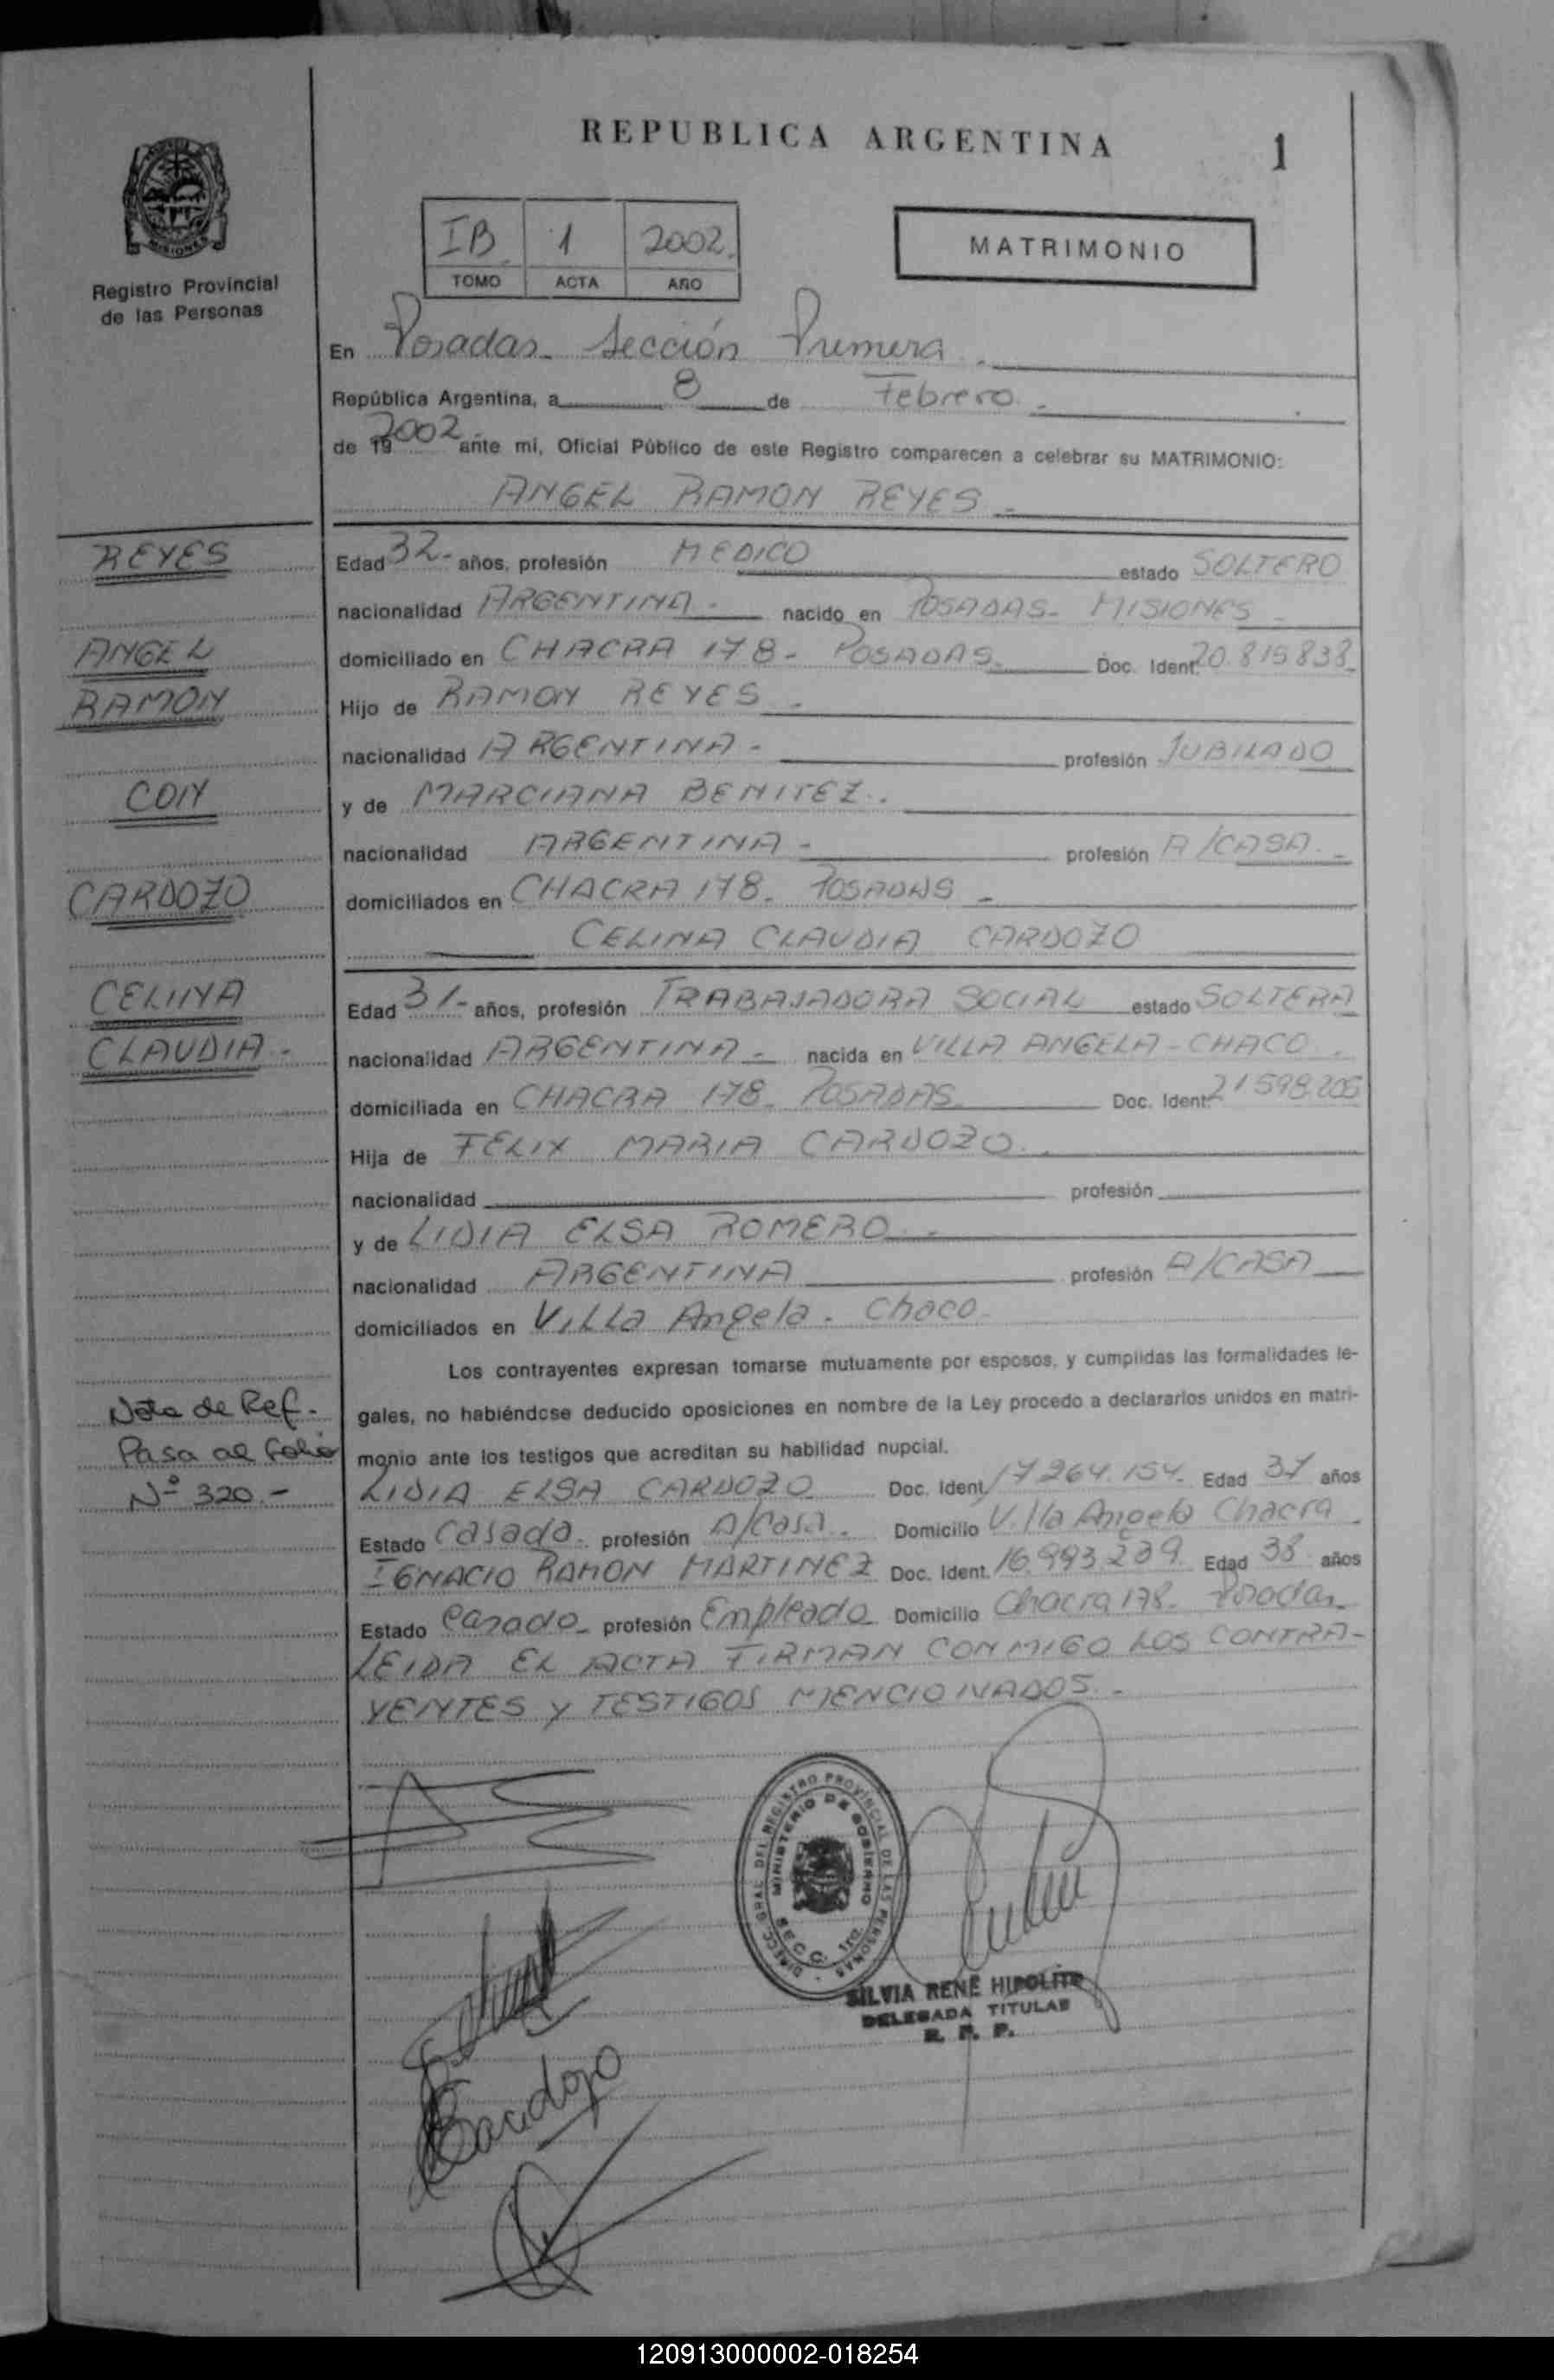 REPUBLICA ARGENTINA
1
MISIONES
Registro Provincial
de las Personas
IB 1 2002.
TOMO ACTA AÑO
MATRIMONIO
En Posadas - Sección Primera -
República Argentina, a 8 de Febrero -
de 19 2002 - ante mi, Oficial Público de este Registro comparecen a celebrar su MATRIMONIO:
ANGEL RAMON REYES -
REYES
ANGEL
RAMON
CON
CARDOZO
CELINA
CLAUDIA -
Edad 32 - años, profesión MEDICO estado SOLTERO
nacionalidad ARGENTINA - nacido en POSADAS - MISIONES
domiciliado en CHACRA 178 - POSADAS Doc. Ident. 20.815838
Hijo de RAMON REYES -
nacionalidad ARGENTINA - profesión JUBILADO
y de MARCIANA BENITEZ .
nacionalidad ARGENTINA - profesión A/CASA -
domiciliados en CHACRA 178. POSADAS -
CELINA CLAUDIA CARDOZO
Edad 31 - años, profesión TRABAJADORA SOCIAL estado SOLTERA
nacionalidad ARGENTINA - nacida en VILLA ANGELA - CHACO .
domiciliada en CHACRA 178. POSADAS Doc. Ident.
Hija de FELIX MARIA CARDOZO .
nacionalidad profesión
y de LIDIA ELSA ROMERO -
nacionalidad ARGENTINA profesión A/CASA
domiciliados en Villa Angela . Chaco -
Los contrayentes expresan tomarse mutuamente por esposos, y cumplidas las formalidades le-
gales, no habiéndose deducido oposiciones en nombre de la Ley procedo a declararlos unidos en matri-
monio ante los testigos que acreditan su habilidad nupcial.
Nota de Ref. -
Pasa al folio
Nº 320 . -
LIDIA ELSA CARDOZO Doc. Ident. 17264.154 - Edad 37 años
Estado Casada - profesión A/Casa . Domicilio Villa Angela Chacra
IGNACIO RAMON MARTINEZ Doc. Ident. 16.993.239 Edad 38 años
Estado Casado - profesión Empleado Domicilio Chacra 178 - Posadas
LEIDA EL ACTA FIRMAN CONMIGO LOS CONTRA-
YENTES Y TESTIGOS MENCIONADOS . -
DIRECC. GRAL DEL REGISTRO PROVINCIAL DE LAS PERSONAS
MINISTERIO DE GOBIERNO
SECC. 1ra.
SILVIA RENE HIPOLITO
DELEGADA TITULAR
R. P. P.
Cardozo
120913000002-018254